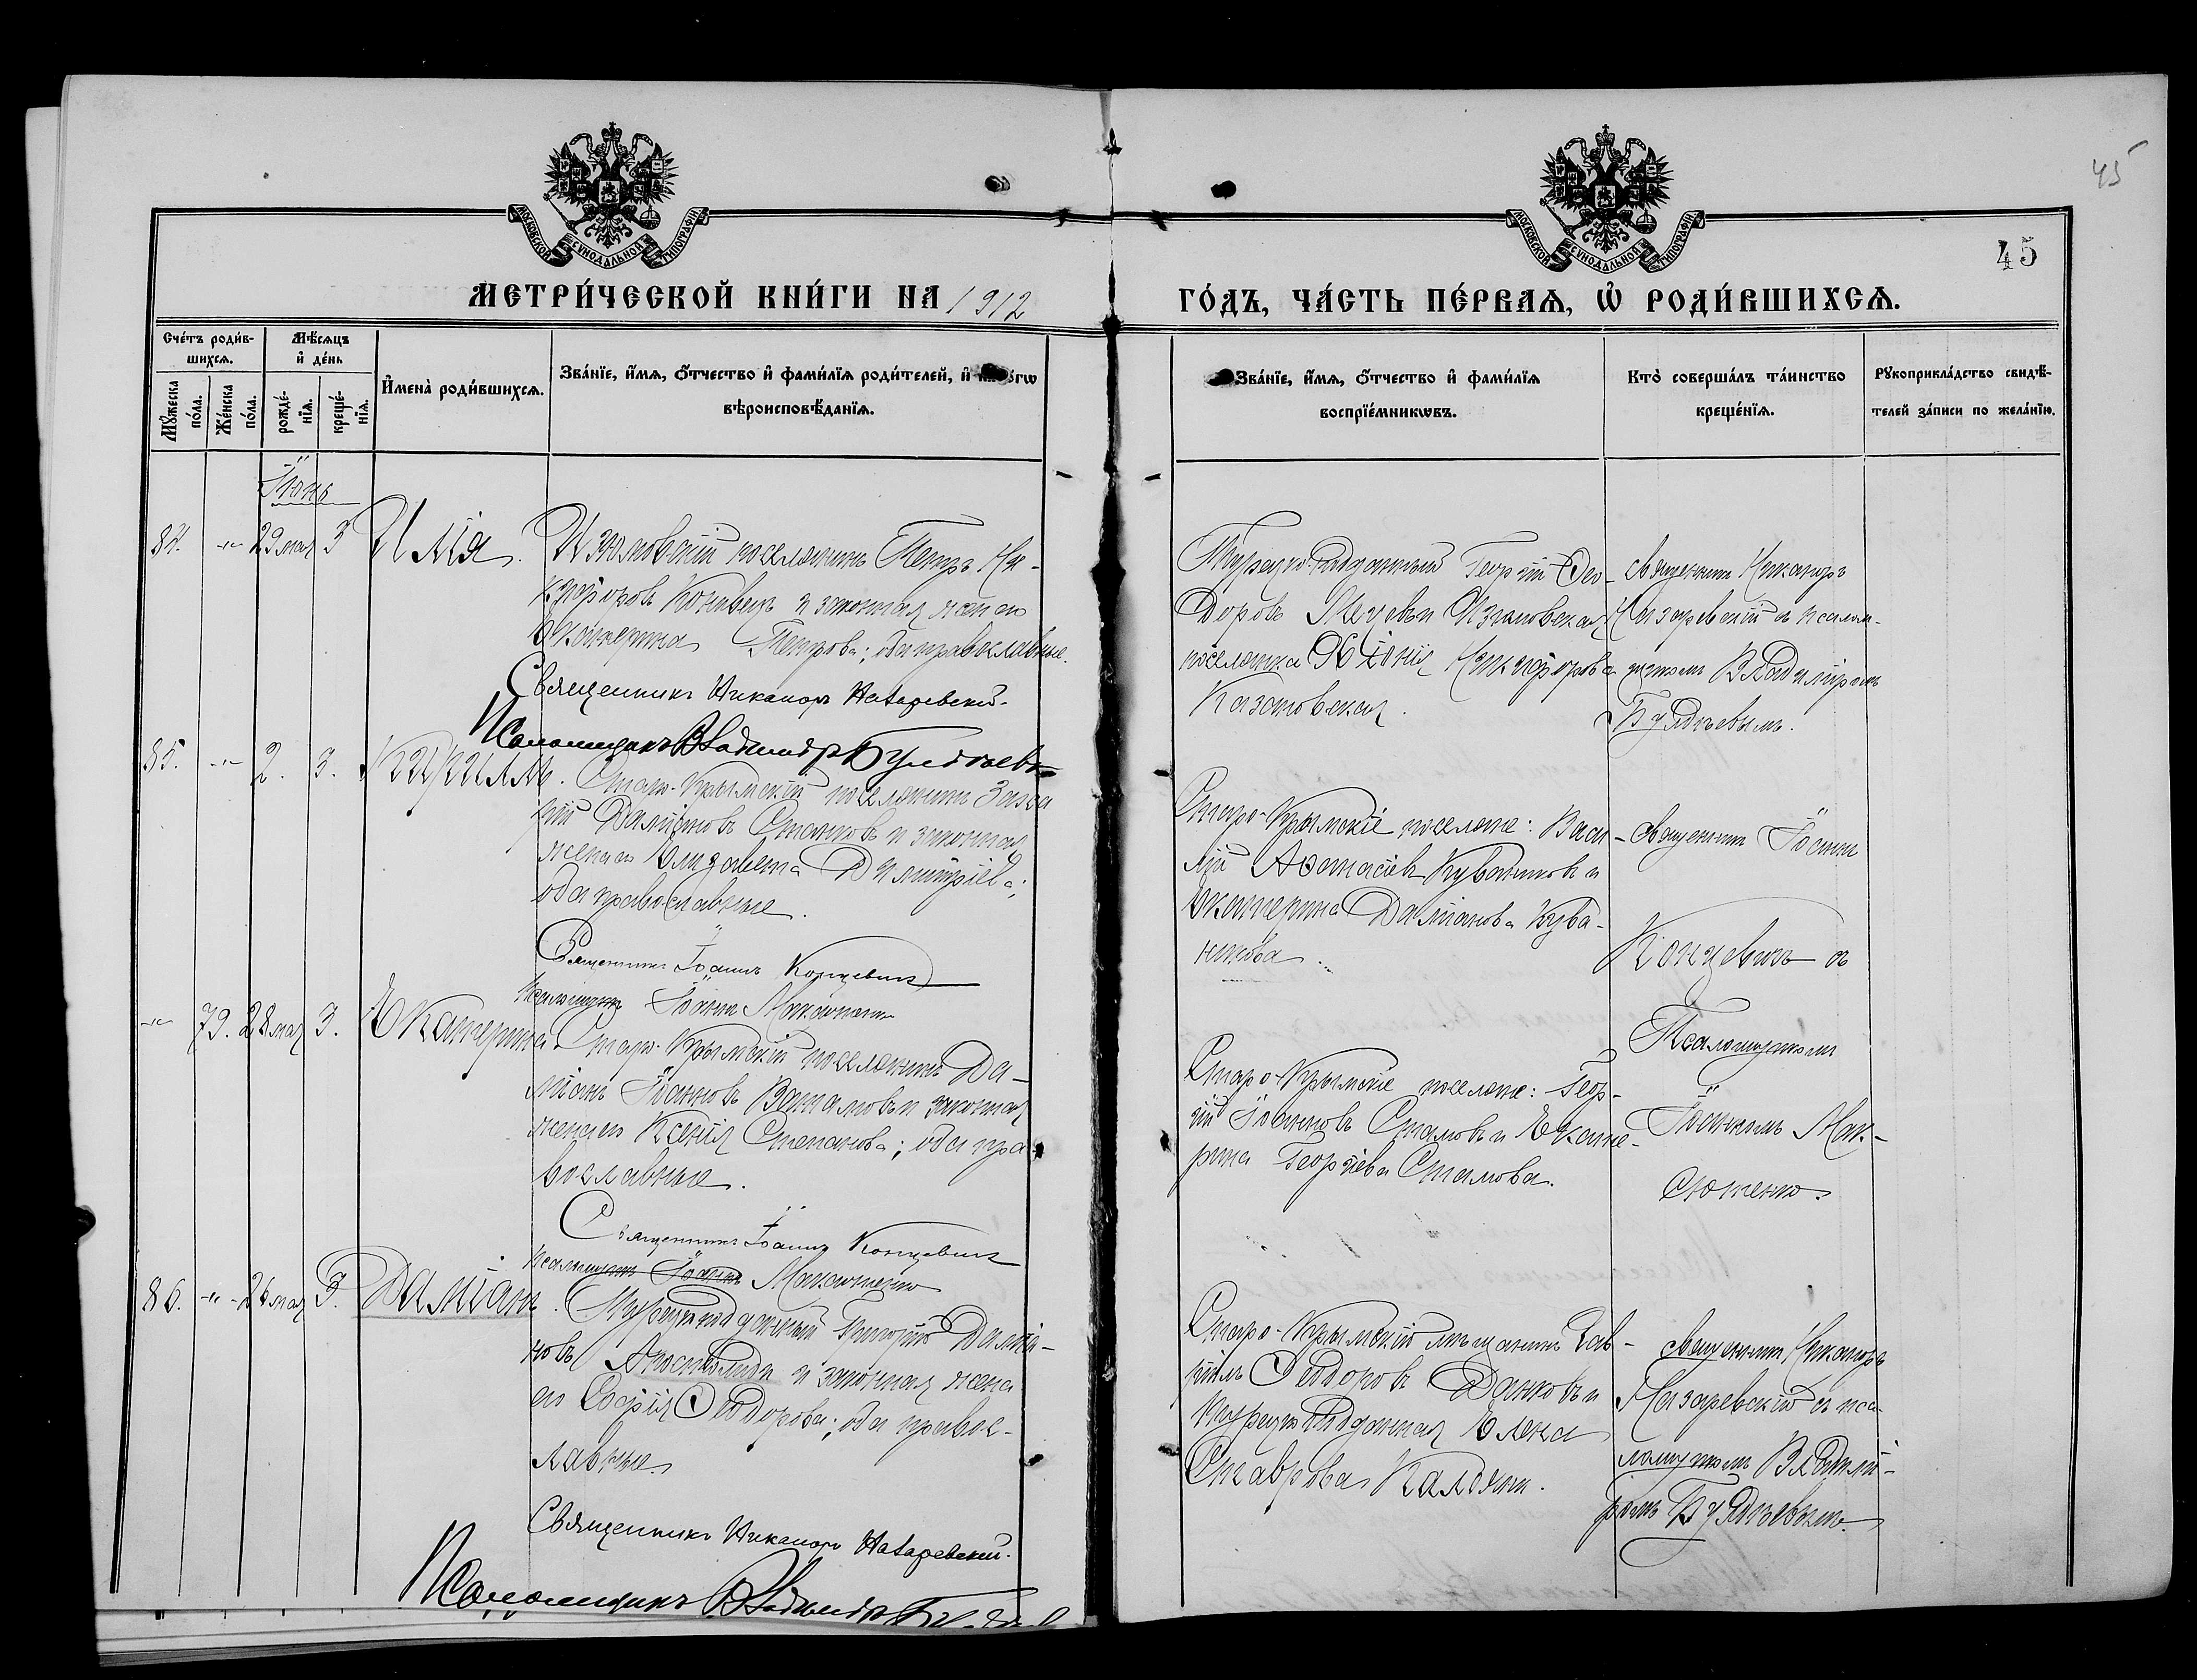 45
МОСКОВСКОЙ СУНОДАЛЬНОЙ ТИПОГРАФІИ
МОСКОВСКОЙ СУНОДАЛЬНОЙ ТИПОГРАФІИ
45
МЕТРИ́ЧЕСКОЙ КНИ́ГИ НА 1912
ГО́ДЪ, ЧА́СТЬ ПЕ́РВАѦ, Ѡ҆ РОДИ́ВШИХСѦ.
Сче́тъ роди́в-
шихсѧ.
Мꙋ́жеска
по́ла.
Же́нска
по́ла.
Мѣ́сѧцъ
и҆ де́нь
рожде́-
нїѧ.
креще́-
нїѧ.
И҆мена̀ роди́вшихсѧ.
Зва́нїе, и҆́мѧ, ѻ҆́тчество и҆ фами́лїѧ роди́телей, и҆
вѣроисповѣ́данїѧ.
Зва́нїе, и҆́мѧ, ѻ҆́тчество и҆ фами́лїѧ
воспрїе́мникѡвъ.
Кто̀ соверша́лъ та́инство
креще́нїѧ.
Рꙋкоприкла́дство свидѣ́-
телей за́писи по жела́нїю.
Іюнь
84. -"- 29 мая 3 Илія.
Изюмовскій поселянинъ Петръ Ни-
кифоровъ и законная жена его
Екатерина Петрова; оба православные.
Священникъ Никаноръ Назаревскій.
Псаломщикъ Владиміръ Булдоевъ
Турецко-подданный Георгій Ѳео-
доровъ и Изюмовская
поселянка Никифорова
Казановская.
священникъ Никаноръ
Назаревскій съ псалом-
щикомъ Владиміромъ
85. -"- 2. 3. Кириллъ.
Старо-Крымскій поселянинъ Заха
рій Даміановъ Стамовъ и законная
жена его Елизавета Димитріева;
оба православные.
Священникъ Іоаннъ Концевичъ
Псаломщикъ Іоаннъ
Старо-Крымскіе поселяне: Васи-
лій Аѳанасіевъ Кубанниковъ и
Екатерина Даміанова Куба-
нникова.
Священникъ Іоаннъ
Концевичъ съ
Псаломщикомъ
Іоанномъ Мак-
-"- 79. 28 мая 3. Екатерина.
Старо-Крымскій поселянинъ Да-
міанъ Іоанновъ и законная
жена его Ксенія Степанова; оба пра-
вославные.
Священникъ Іоаннъ Концевичъ
Псаломщикъ Іоаннъ
Старо-Крымскіе поселяне: Геор-
гій Іоанновъ Стамовъ и Екате-
рина Георгіева Стамова.
86. -"- 26 мая 3. Даміанъ.
Турецкоподданный Даміа-
новъ Апостолиди и законная жена
его Софія Ѳеодорова; оба правос-
лавные.
Священникъ Никаноръ Назаревскій.
Псаломщикъ Владиміръ
Старо-Крымскій мѣщанинъ Гав-
ріилъ Ѳеодоровъ Данковъ и
турецко-подданная Елена
Ставрова
священникъ Никаноръ
Назаревскій съ пса-
ломщикомъ Владими-
ромъ